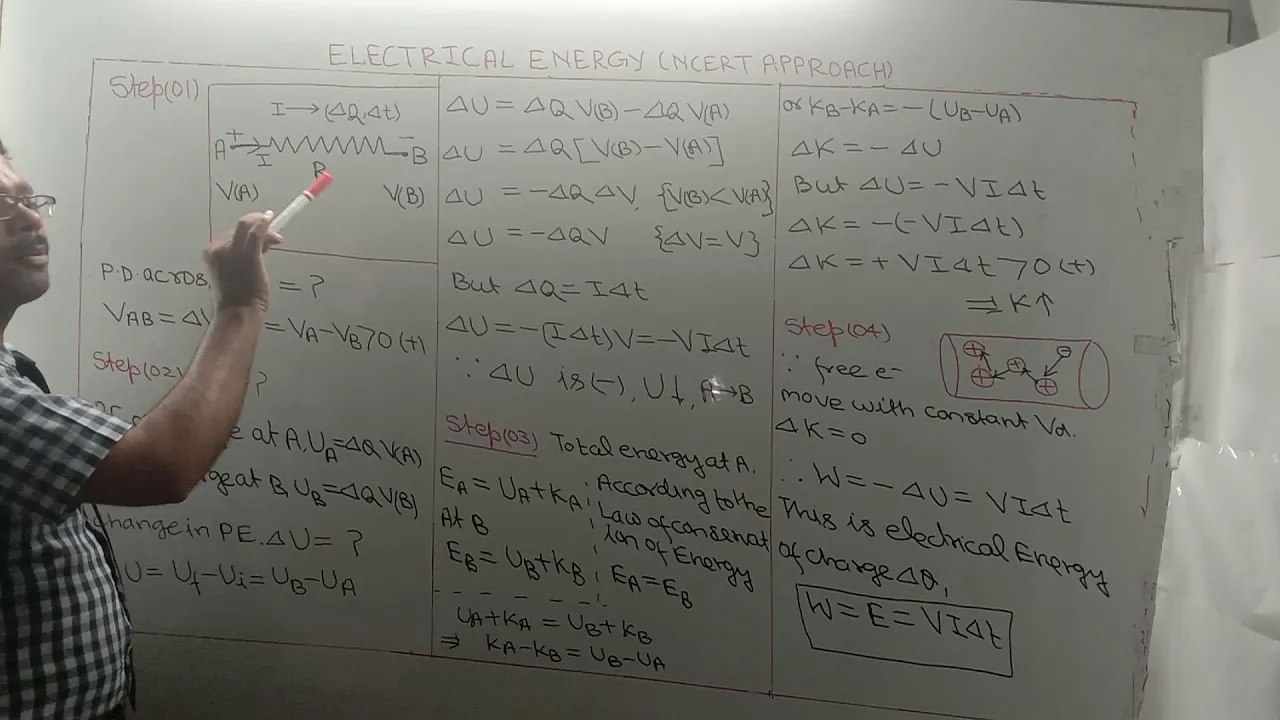 ELECTRICAL ENERGY (NCERT APPROACH)
Step(01)
I→(ΔQ,Δt)
A + I R - B
V(A) V(B)
P.D. across = ?
VAB=ΔV = VA-VB>0(+)
Step(02) ?
at A, UA=ΔQV(A)
at B, UB=ΔQV(B)
change in PE. ΔU= ?
U= Uf-Ui= UB-UA
ΔU = ΔQ V(B)-ΔQ V(A)
ΔU = ΔQ[V(B)-V(A)]
ΔU = -ΔQ ΔV, {V(B)<V(A)}
ΔU = -ΔQV {ΔV=V}
But ΔQ= IΔt
ΔU= -(IΔt)V= -VIΔt
∵ ΔU is (-), U↓, A→B
Step(03) Total energy at A.
EA= UA+KA
At B
EB= UB+KB
According to the
Law of conservat
ion of Energy
EA=EB
UA+KA = UB+KB
⇒ KA-KB= UB-UA
or KB-KA= -(UB-UA)
ΔK= - ΔU
But ΔU= -VIΔt
ΔK= -(-VIΔt)
ΔK= + VIΔt>0(+)
⇒K↑
Step(04)
∵ free e-
move with constant Vd.
ΔK=0
∴ W= - ΔU= VIΔt
This is electrical Energy
of charge ΔQ,
W= E= VIΔt